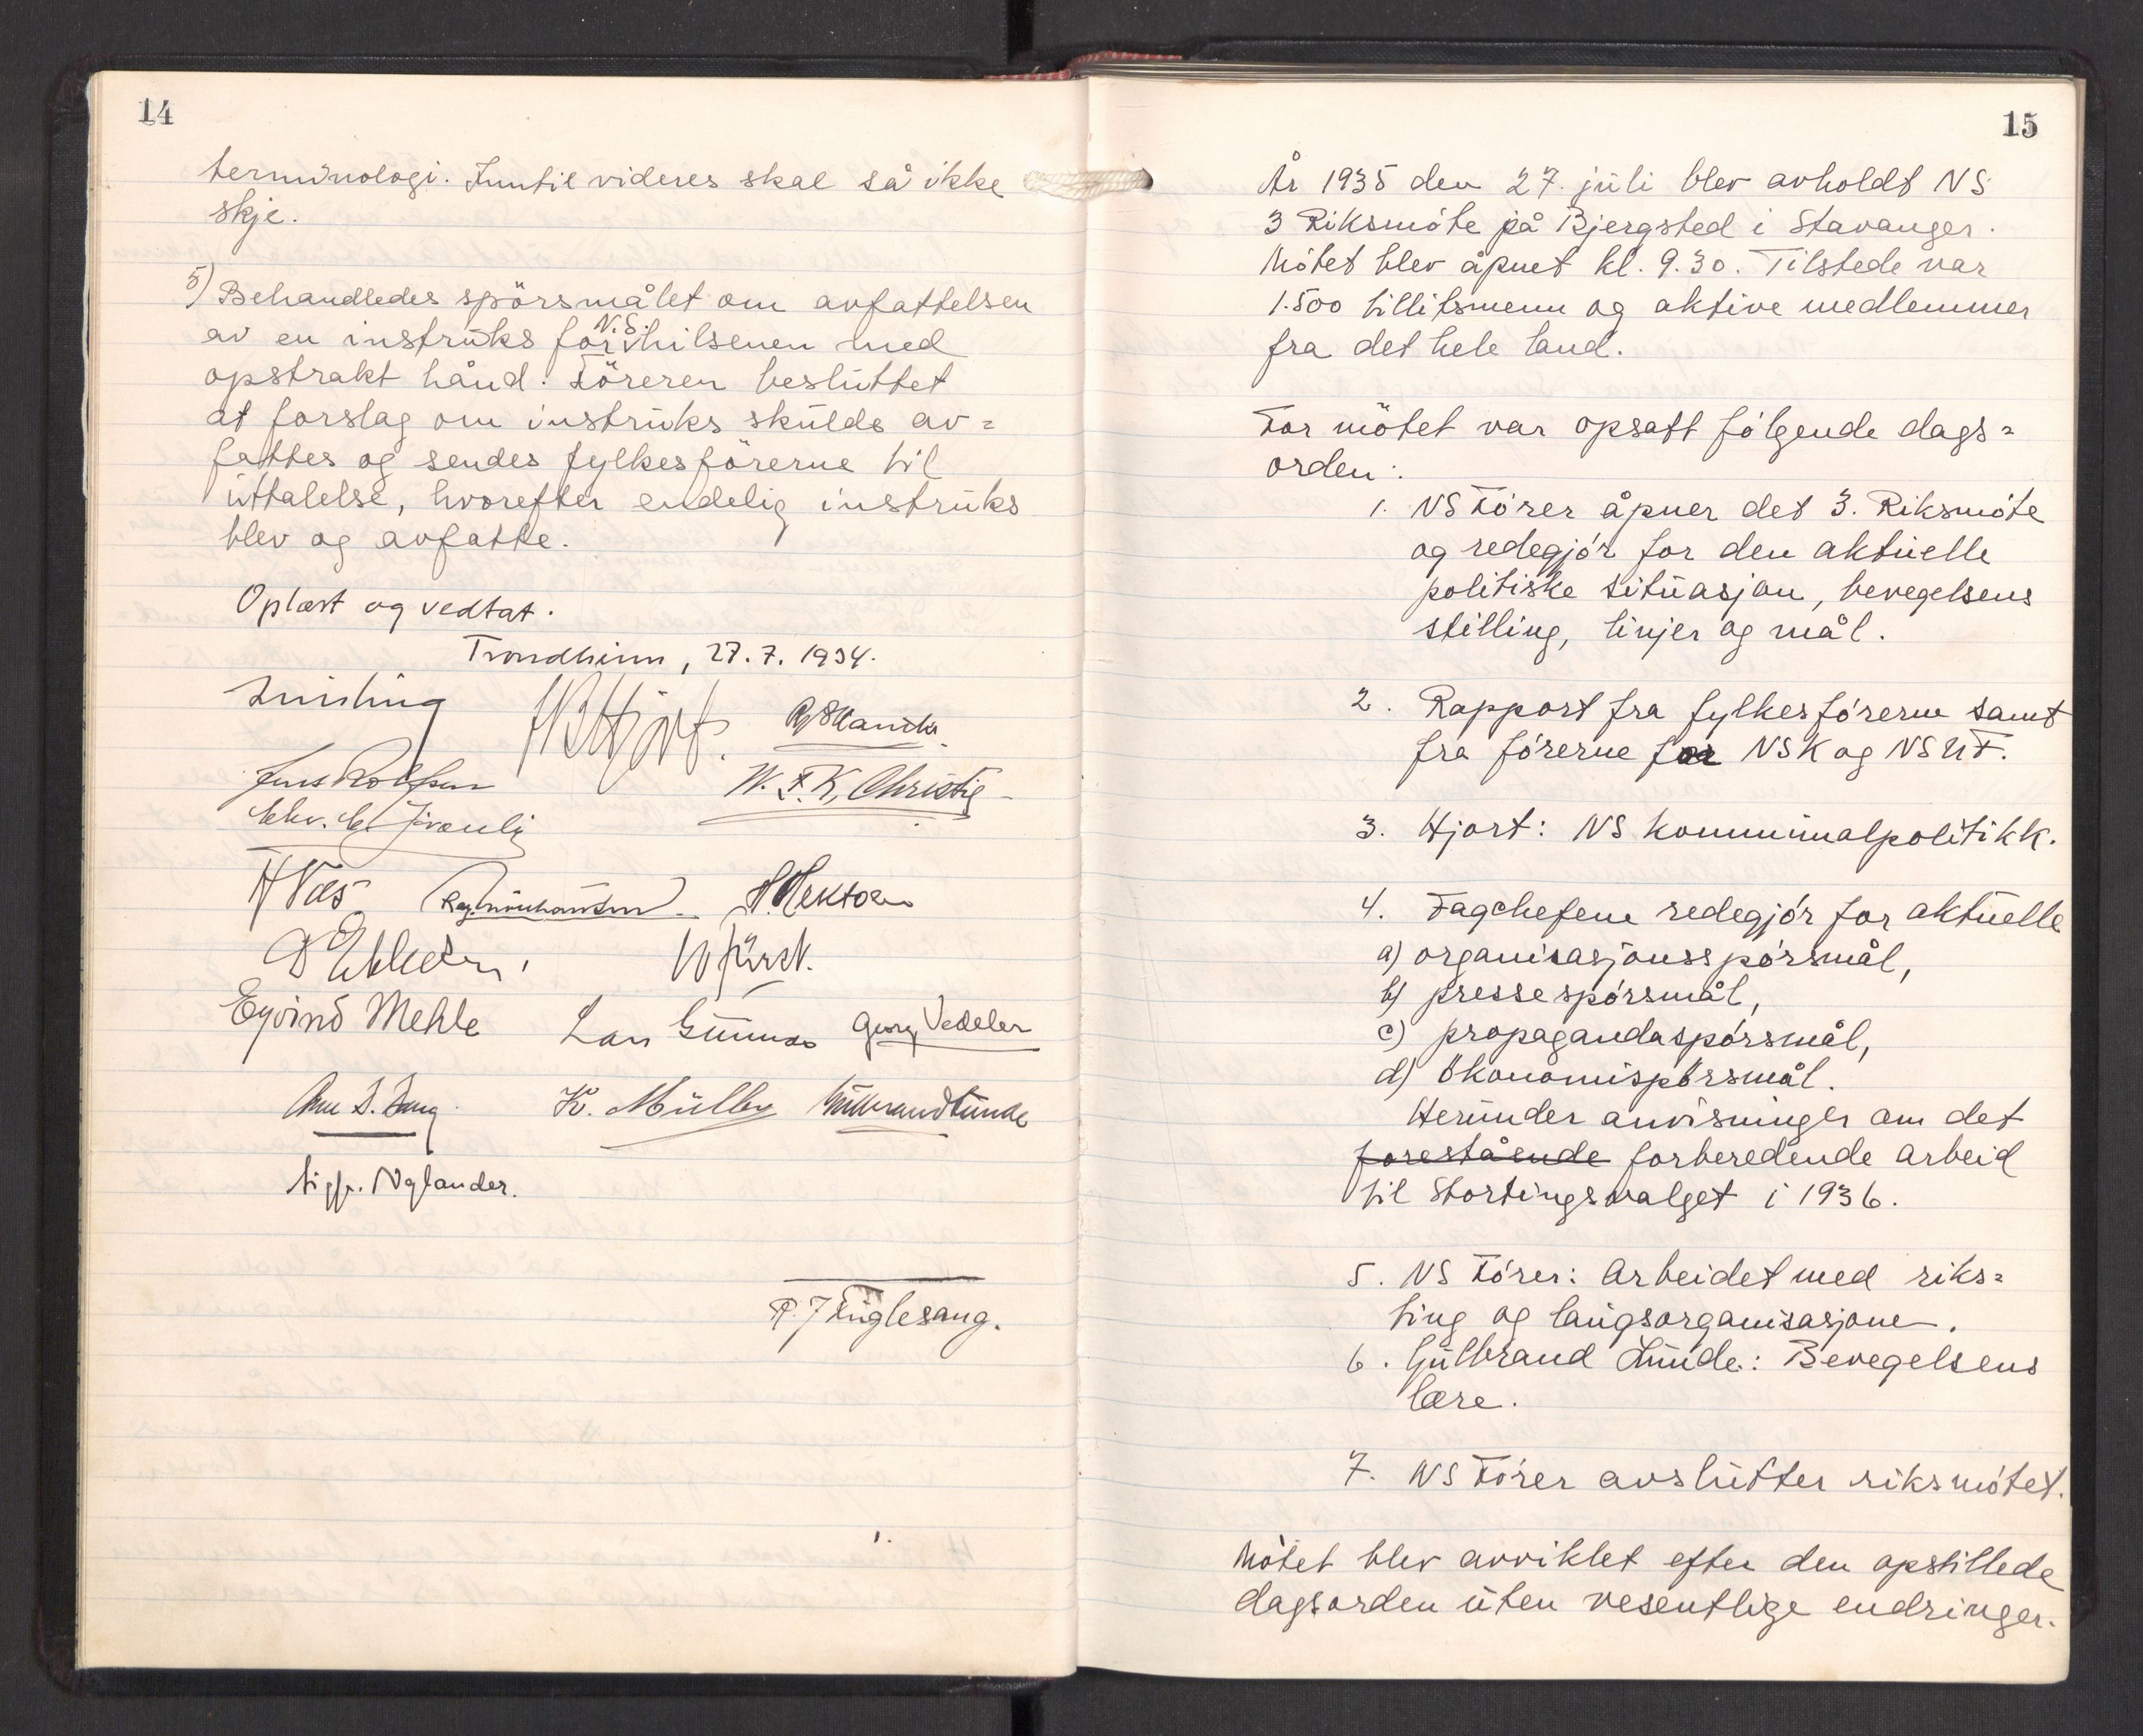 14
terminologi. Inntil videres skal så ikke
skje.
5) Behandledes spörsmålet om avfattelsen
av en instruks for N.S. hilsenen med
opstrakt hånd. Föreren besluttet
at forslag om instruks skulde av=
fattes og sendes fylkesförerne til
uttalelse, hvorefter endelig instruks
blev og avfatte.
Oplæst og vedtat.
Trondheim, 27.7. 1934.
Quisling
JB Hjort. R. Skancke
Jens Rolfsen W. F. K. Christie
H Næs H. Hektoen
W Fürst.
Eyvind Mehle Georg Vedeler
K. Müller Gulbrand Lunde
Sigfr. Nylander.
R. J Fuglesang.
15
År 1935 den 27. juli blev avholdt NS
3 Riksmöte på Bjergsted i Stavanger.
Mötet blev åpnet kl. 9.30. Tilstede var
1.500 tillitsmenn og aktive medlemmer
fra det hele land.
For mötet var opsatt fölgende dags=
orden:
1. NS Förer åpner det 3. Riksmöte
og redegjör for den aktuelle
politiske situasjon, bevegelsens
stilling, linjer og mål.
2. Rapport fra fylkesförerne samt
fra förerne for NSK og NSUF.
3. Hjort: NS kommunalpolitikk.
4. Fagchefene redegjör for aktuelle
a) organisasjonsspörsmål,
b) pressespörsmål,
c) propagandaspörsmål,
d) ökonomispörsmål.
Herunder anvisninger om det
forestående forberedende arbeid
til Stortingsvalget i 1936.
5. NS Förer: Arbeidet med riks=
ting og laugsorganisasjone.
6. Gulbrand Lunde: Bevegelsens
lære.
7. NS Förer avslutter riksmötet.
Mötet blev avviklet efter den opstillede
dagsorden uten vesentlige endringer.